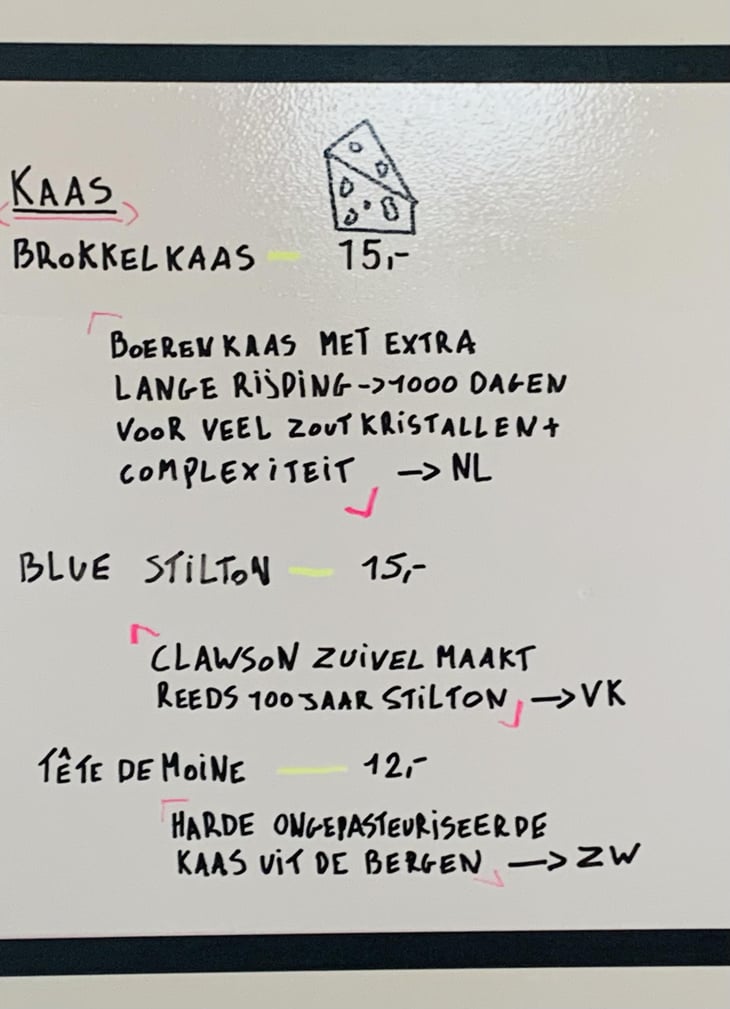 KAAS
BROKKELKAAS - 15,-
BOERENKAAS MET EXTRA
LANGE RIJPING -> 1000 DAGEN
VOOR VEEL ZOUTKRISTALLEN +
COMPLEXITEIT -> NL
BLUE STILTON - 15,-
CLAWSON ZUIVEL MAAKT
REEDS 100 JAAR STILTON -> VK
TÊTE DE MOINE - 12,-
HARDE ONGEPASTEURISEERDE
KAAS UIT DE BERGEN -> ZW